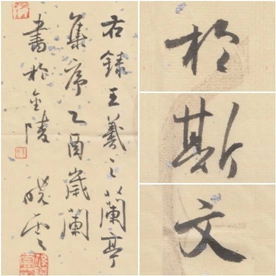 右録王羲之蘭亭
集序乙酉歲蘭
書於金陵
曉雲
於
斯
文